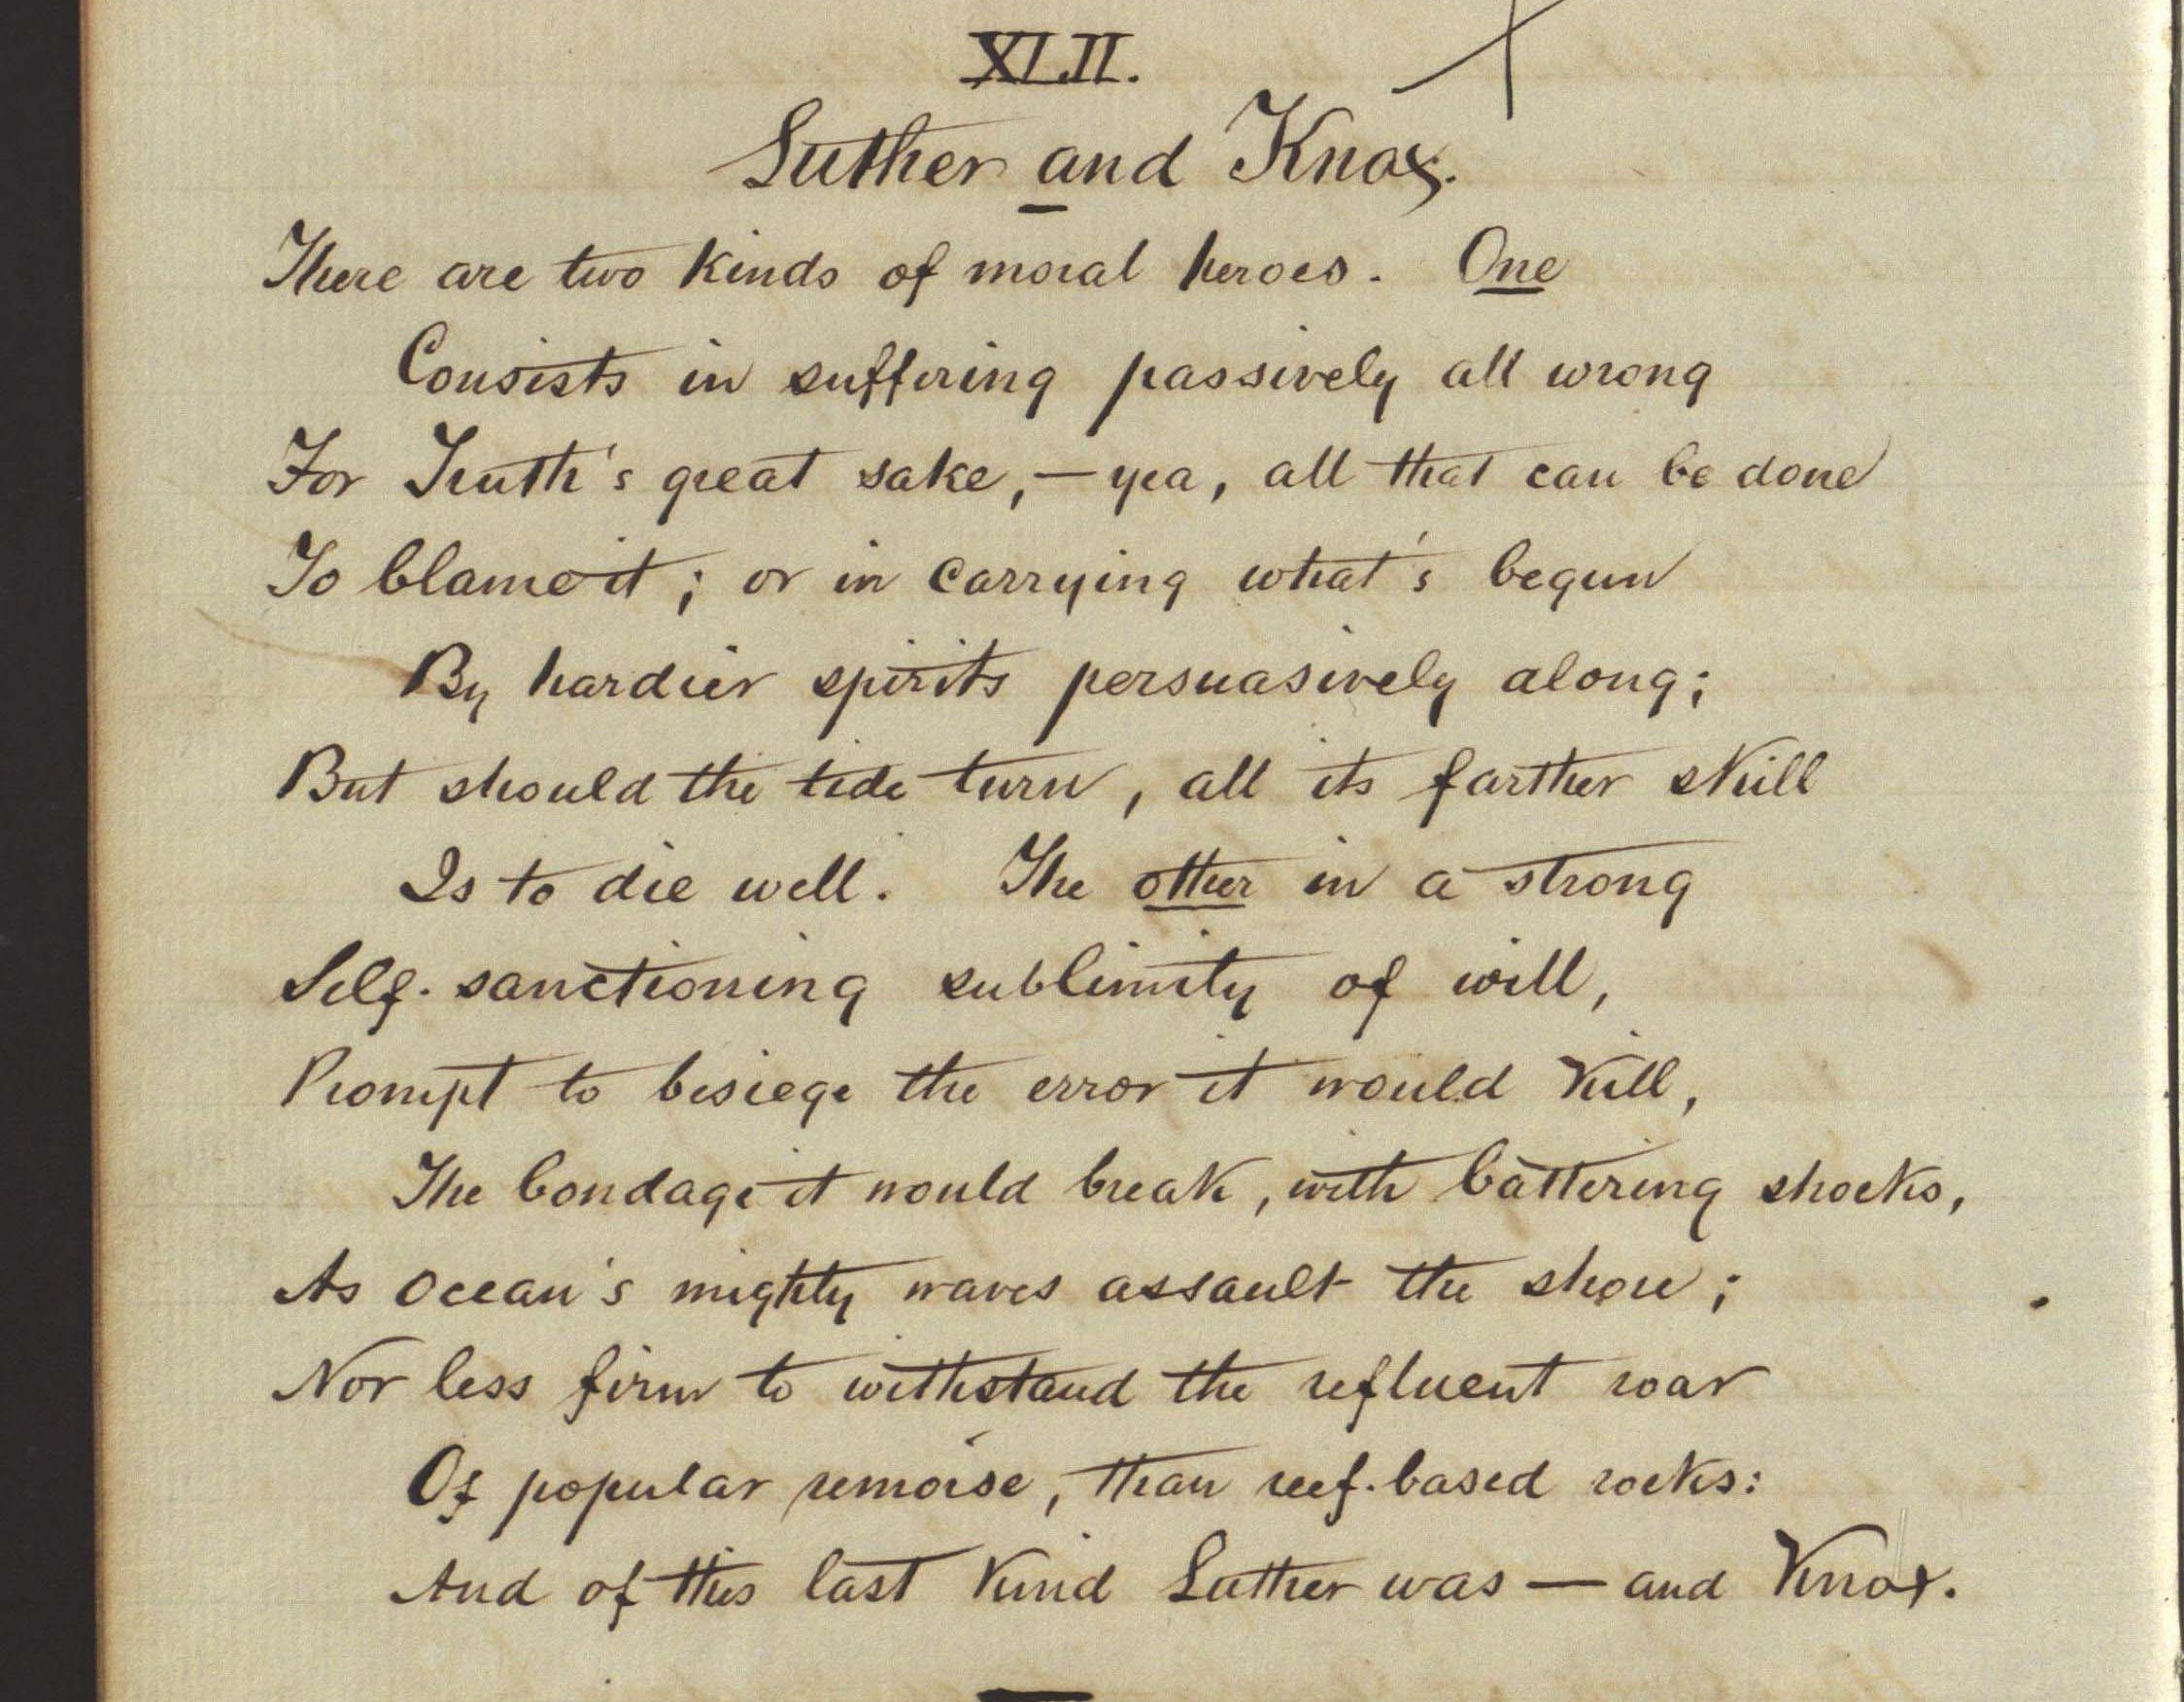 XLII.
Luther and Knox.
There are two kinds of moral heroes. One
Consists in suffering passively all wrong
For Truth's great sake,—yea, all that can be done
To blame it; or in carrying what's begun
By hardier spirits persuasively along;
But should the tide turn, all its farther skill
Is to die well. The other in a strong
Self-sanctioning sublimity of will,
Prompt to besiege the error it would kill,
The bondage it would break, with battering shocks,
As Ocean's mighty waves assault the shore;
Nor less firm to withstand the refluent roar
Of popular remorse, than reef-based rocks:
And of this last kind Luther was — and Knox.